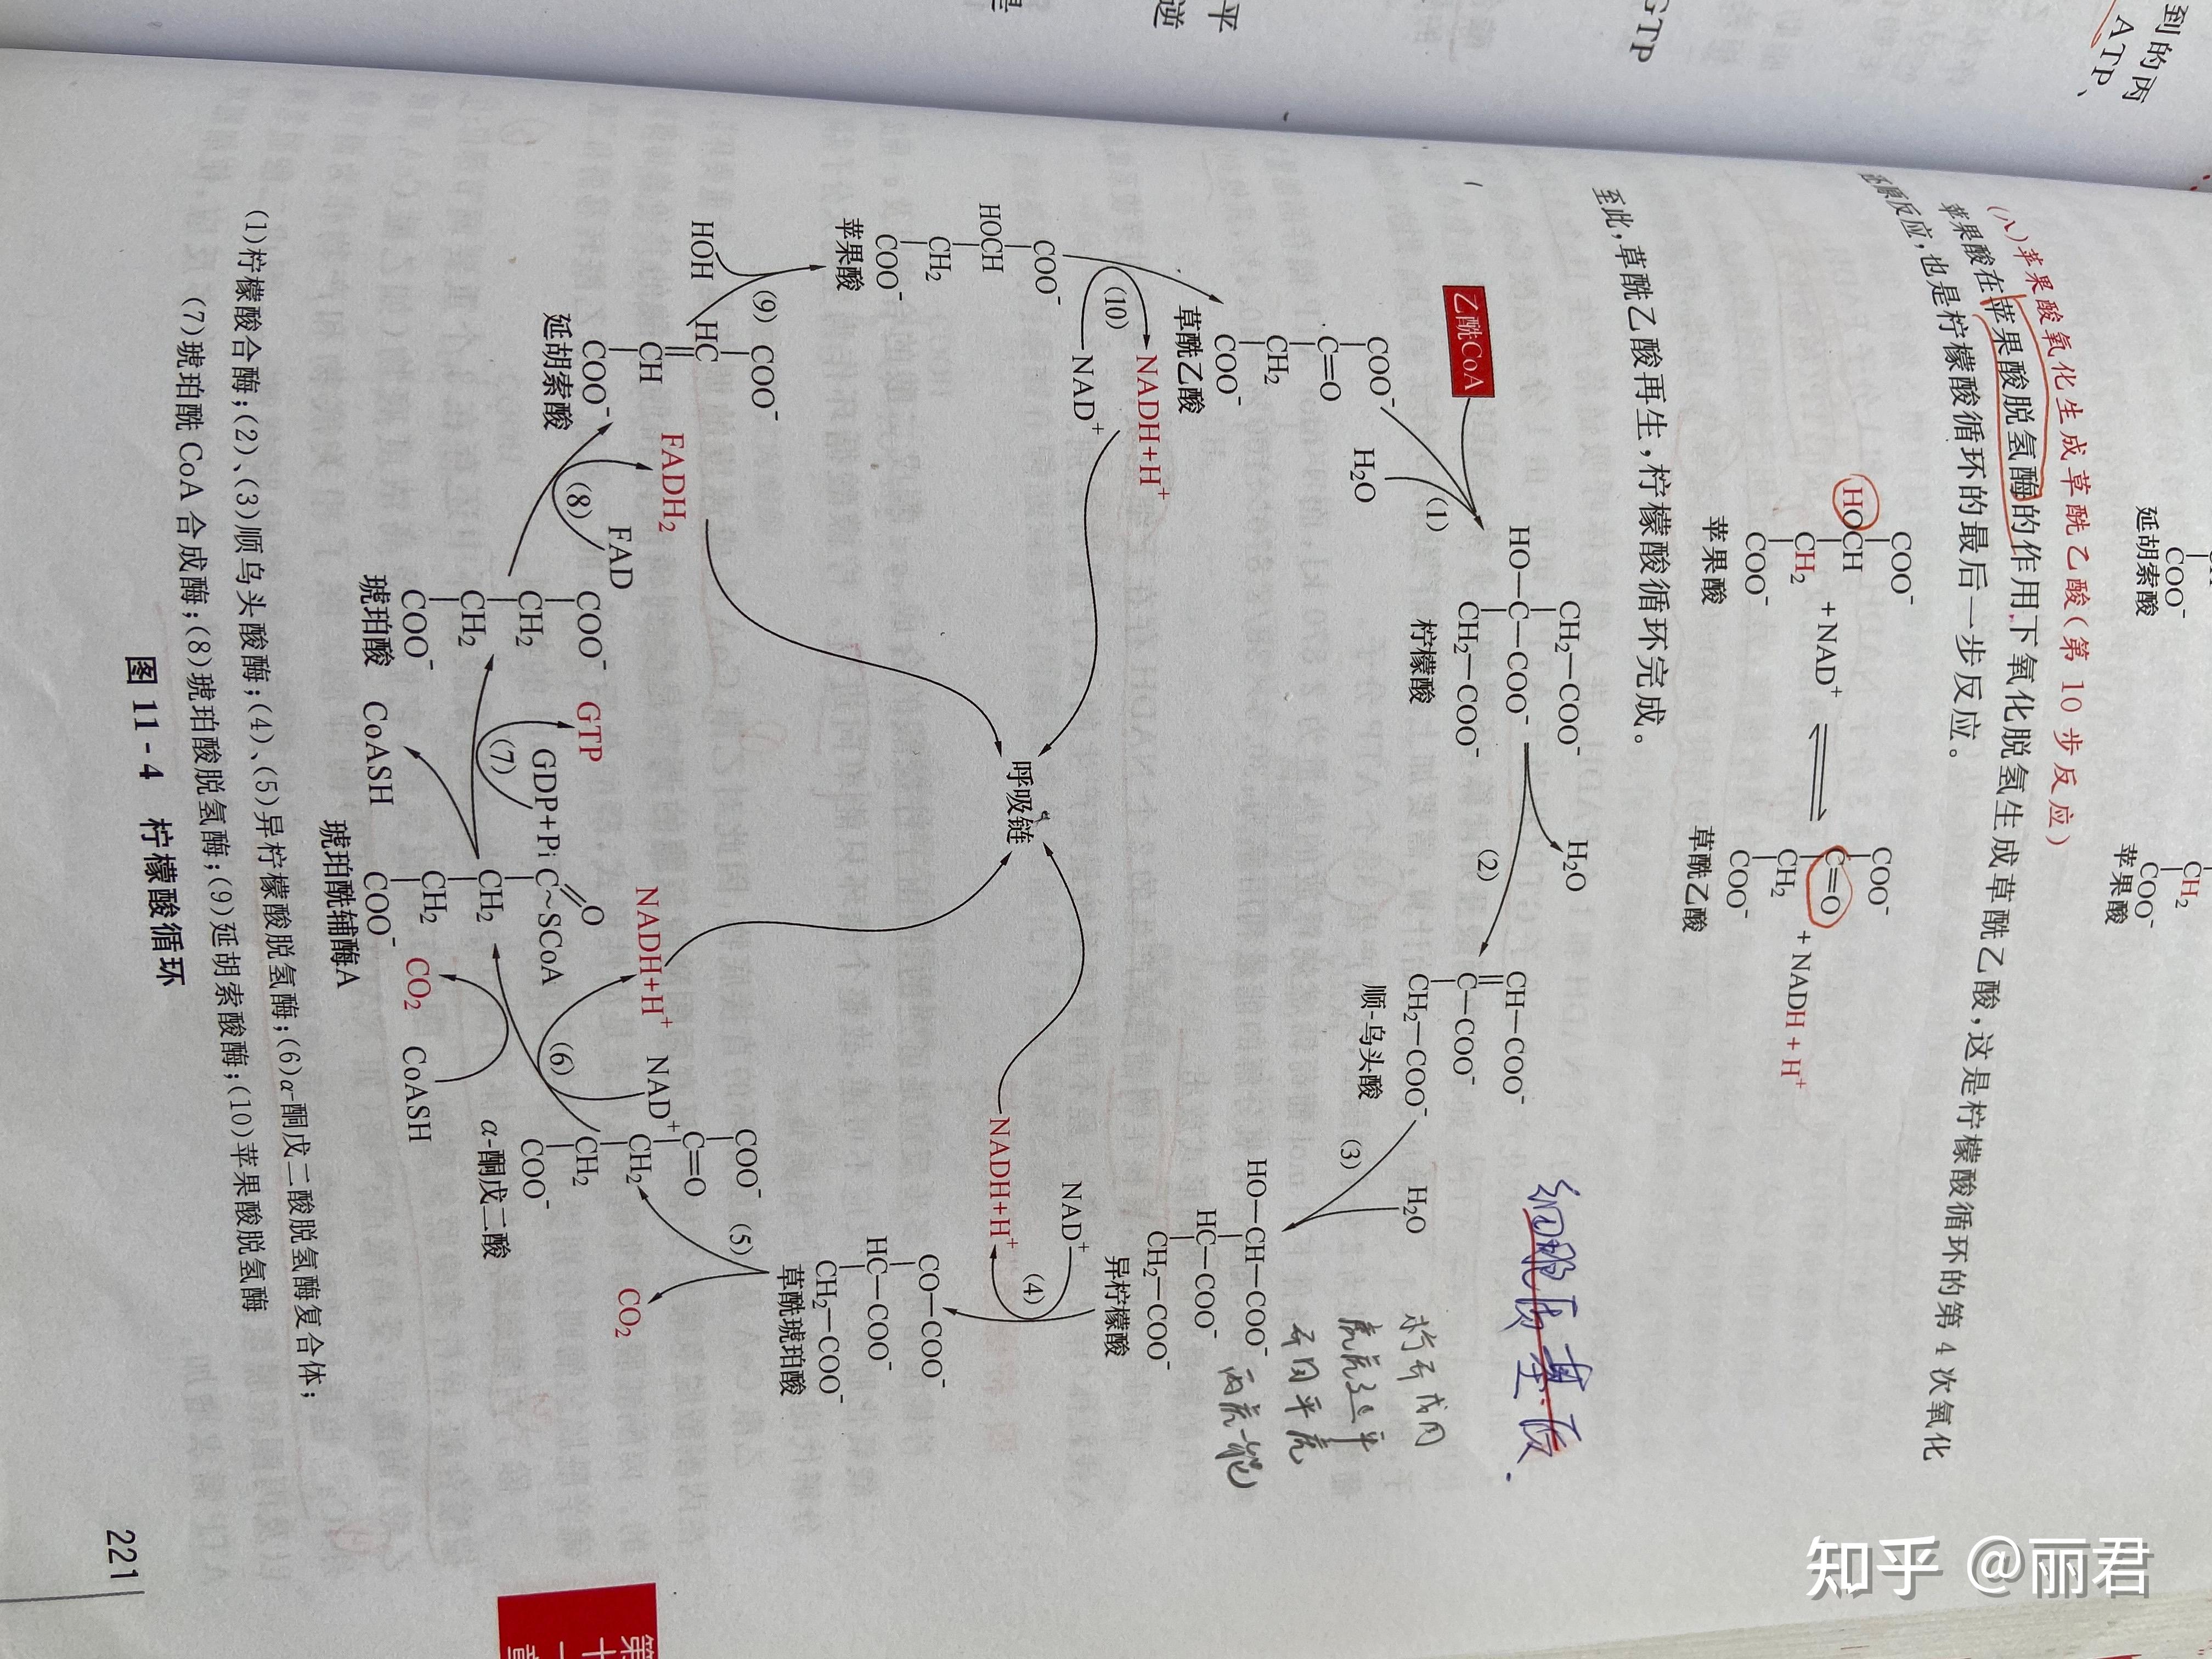 到的丙
ATP、
GTP
平
逆
延胡索酸
COO⁻
CH₂
COO⁻
苹果酸
(八)苹果酸氧化生成草酰乙酸(第 10 步反应)
苹果酸在苹果酸脱氢酶的作用下氧化脱氢生成草酰乙酸,这是柠檬酸循环的第 4 次氧化
还原反应,也是柠檬酸循环的最后一步反应。
COO⁻
HOCH
CH₂
COO⁻
苹果酸
+NAD⁺
COO⁻
C=O
CH₂
COO⁻
草酰乙酸
+NADH+H⁺
至此,草酰乙酸再生,柠檬酸循环完成。
细胞质基质.
乙酰CoA
COO⁻
C=O
CH₂
COO⁻
草酰乙酸
H₂O
(1)
CH₂—COO⁻
HO—C—COO⁻
CH₂—COO⁻
柠檬酸
H₂O
(2)
CH—COO⁻
C—COO⁻
CH₂—COO⁻
顺-乌头酸
(3)
H₂O
HO—CH—COO⁻
HC—COO⁻
CH₂—COO⁻
异柠檬酸
NAD⁺
(4)
NADH+H⁺
CO—COO⁻
HC—COO⁻
CH₂—COO⁻
草酰琥珀酸
(5)
CO₂
COO⁻
C=O
CH₂
CH₂
COO⁻
α-酮戊二酸
NAD⁺
(6)
NADH+H⁺
CoASH
CO₂
O
C~SCoA
CH₂
CH₂
COO⁻
琥珀酰辅酶A
GDP+Pi
(7)
GTP
CoASH
COO⁻
CH₂
CH₂
COO⁻
琥珀酸
FAD
(8)
FADH₂
COO⁻
HC
CH
COO⁻
延胡索酸
(9)
HOH
COO⁻
HOCH
CH₂
COO⁻
苹果酸
(10)
NAD⁺
NADH+H⁺
呼吸链
(1)柠檬酸合酶;(2)、(3)顺乌头酸酶;(4)、(5)异柠檬酸脱氢酶;(6)α-酮戊二酸脱氢酶复合体;
(7)琥珀酰 CoA 合成酶;(8)琥珀酸脱氢酶;(9)延胡索酸酶;(10)苹果酸脱氢酶
图 11-4 柠檬酸循环
221
第十一章
知乎 @丽君